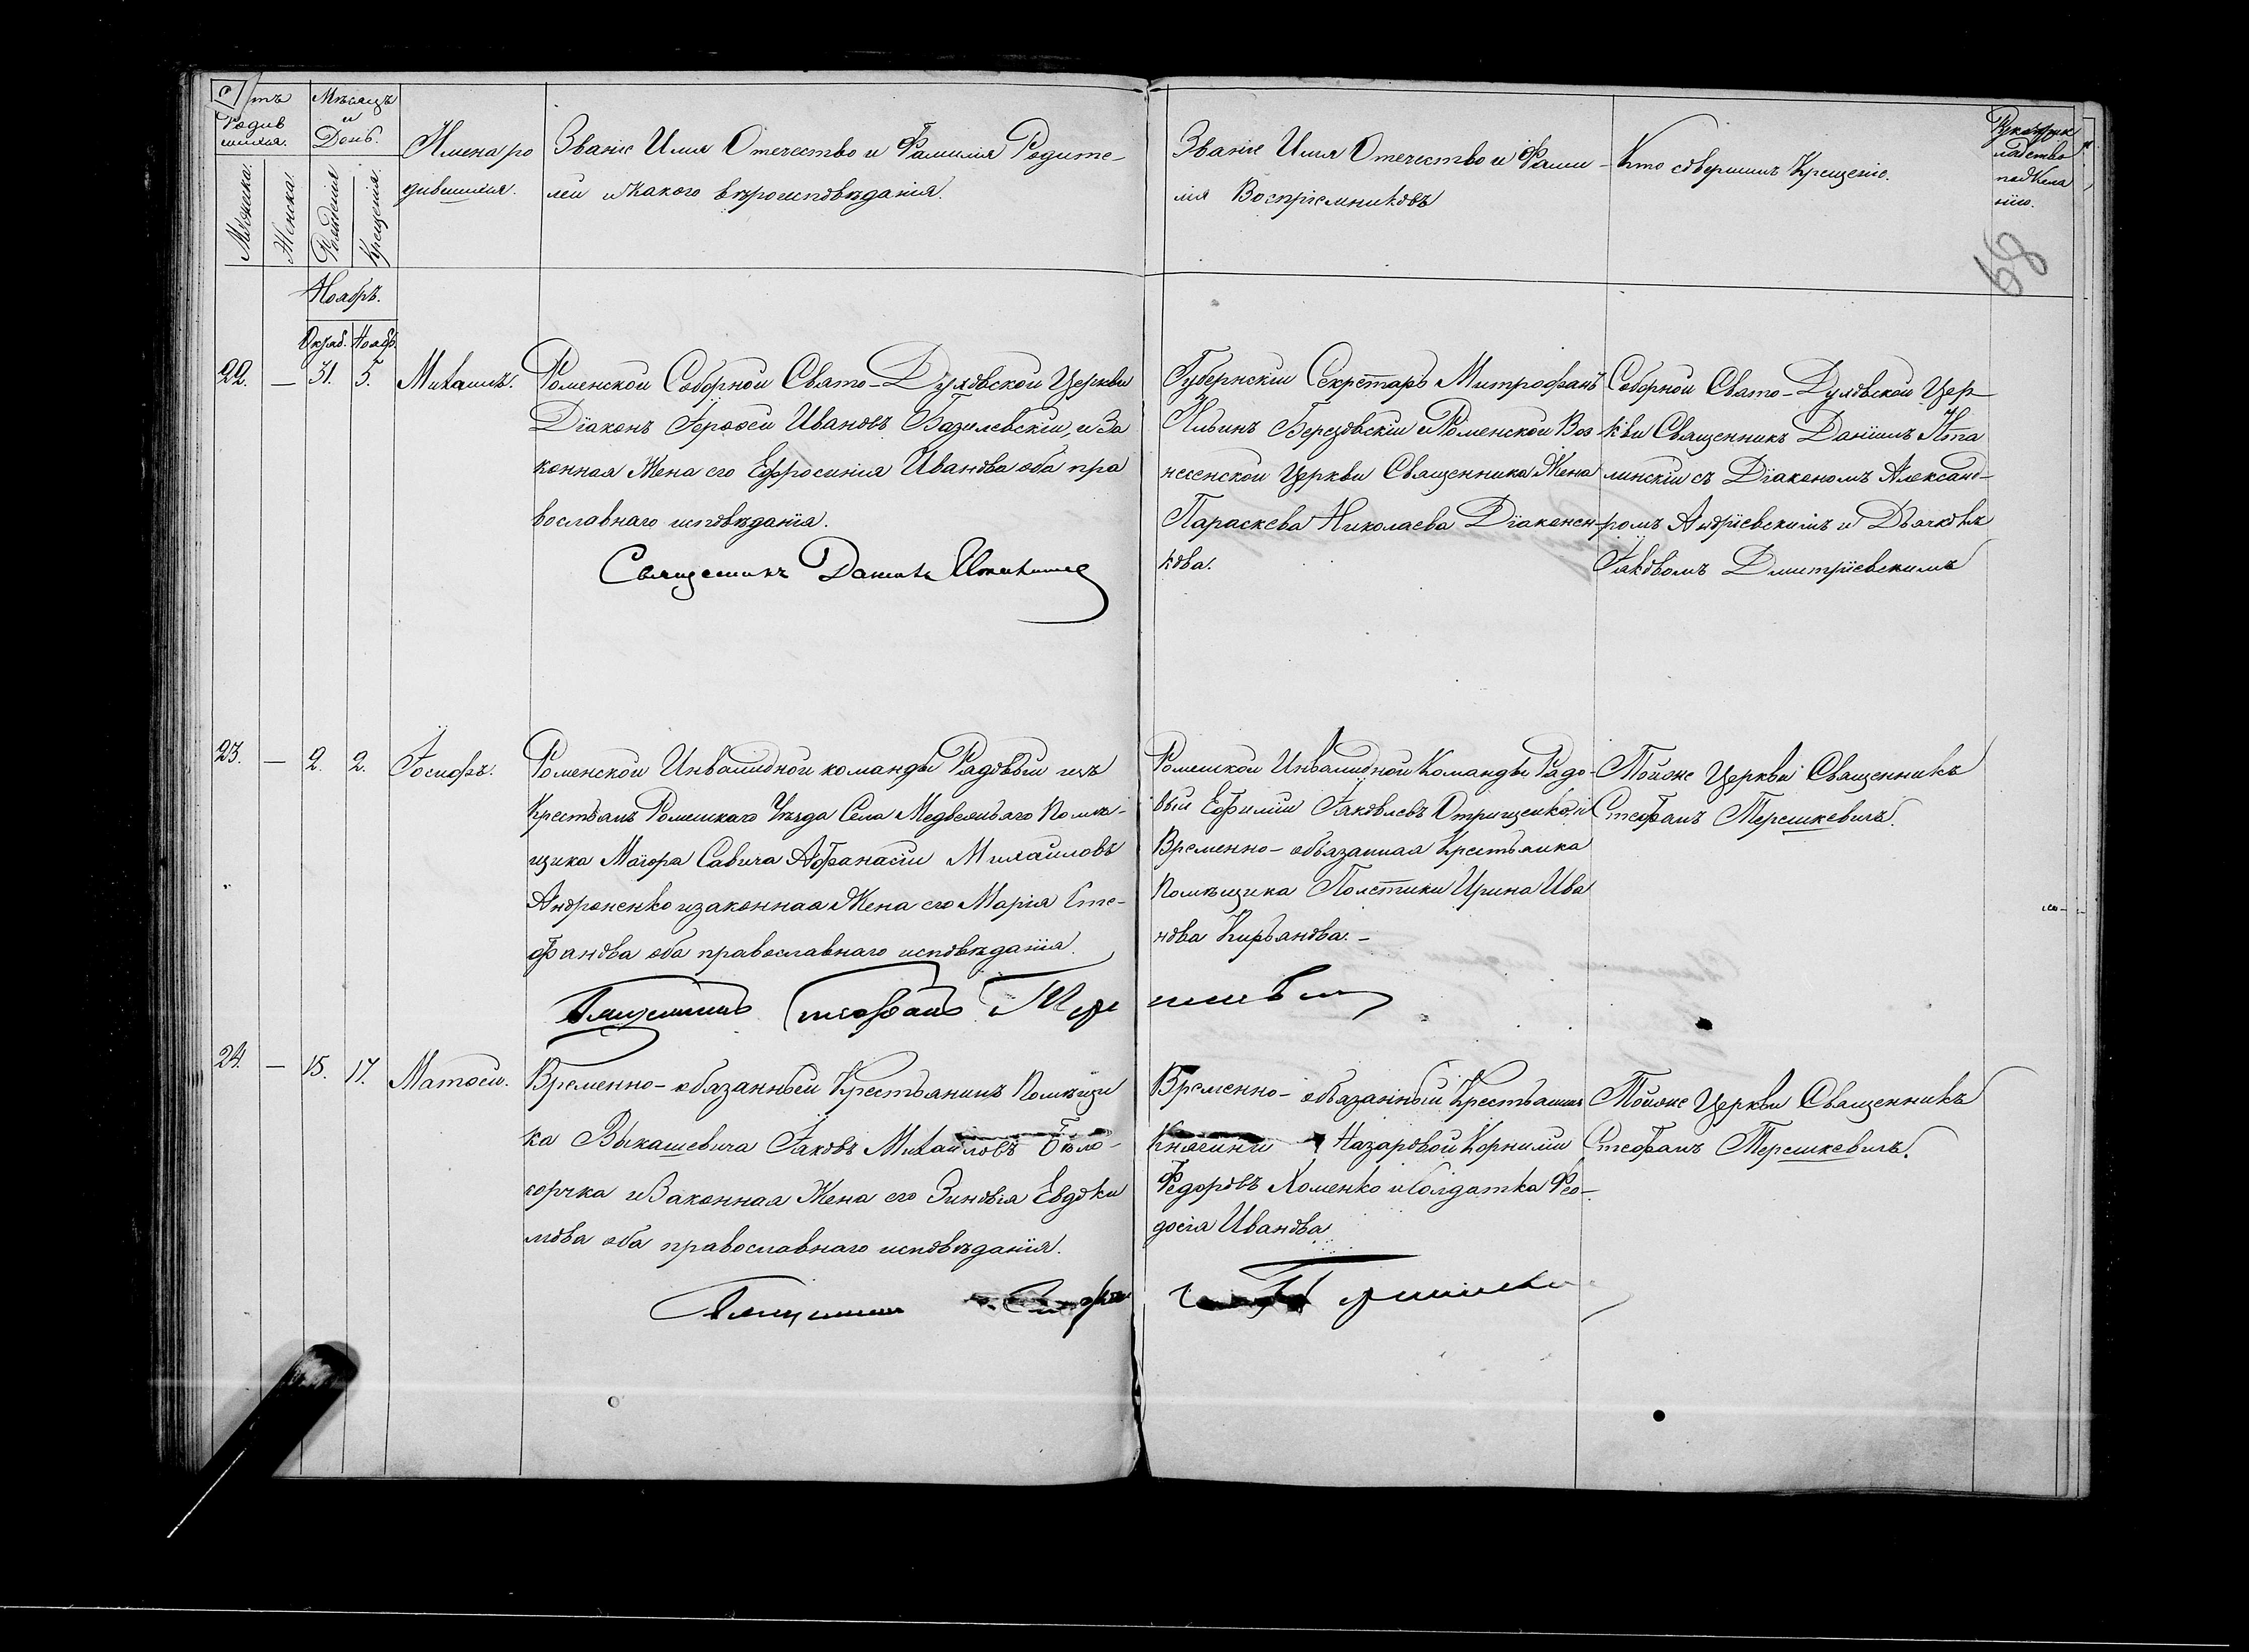 Мѣсяцъ
и
День.
Родив
шихся.
Имена ро
дившихся.
Званіе Имя Отечество и Фамилія Родите-
лей и какого вѣроисповѣданія.
Званіе Имя Отечество и Фами-
лія Воспріемниковъ
Кто совершилъ Крещеніе.
Мужска.
Женска.
Рожденія
Крещенія.
68
Ноябрь.
Октяб. Ноябр.
22. — 31. 5. Михаилъ.
Роменской Соборной Свято-Духовской Церкви
Діаконъ Іерофей Ивановъ Базилевскій, и За
конная Жена его Ефросинія Иванова оба пра
вославнаго исповѣданія.
Священникъ Даніилъ
Губернскій Секретарь Митрофанъ
Ильинъ Березовскій и Роменской Воз-
несенской Церкви Священника Жена
Параскева Николаева Діаконен-
кова.
Соборной Свято-Духовской Цер-
кви Священникъ Даніилъ Ита
линскій съ Діакономъ Александ-
ромъ Андріевскимъ и Дьячкомъ
Іаковомъ Дмитріевскимъ
23. — 2. 2. Іосифъ.
Роменской Инвалидной команды Рядовый изъ
Крестьянъ Роменскаго Уѣзда Села Медвежьяго Помѣ-
щика Маіора Савича Афанасій Михаиловъ
Андроненко и законная Жена его Марія Сте-
фанова оба православнаго исповѣданія.
Священникъ Стефанъ
Роменской Инвалидной Команды Рядо-
вый Ефимій Іаковлевъ Отрищенко, и
Временно-обязанная Крестьянка
Помѣщика Полетики Ирина Ива
нова Кирьянова.-
Тойже Церкви Священникъ
Стефанъ Терешкевичъ.
24. — 15. 17. Матфей.
Временно-обязанный Крестьянинъ Помѣщи
ка Выкашевича Іаковъ Михаиловъ Бѣло-
горчка и Законная Жена его Зиновія Евдоки
мова оба православнаго исповѣданія.
Священникъ
Временно-обязанный Крестьянинъ
Княгини Назаровой Корнилій
Федоровъ Хоменко и Солдатка Фео-
досія Иванова
Тойже Церкви Священникъ
Стефанъ Терешкевичъ.